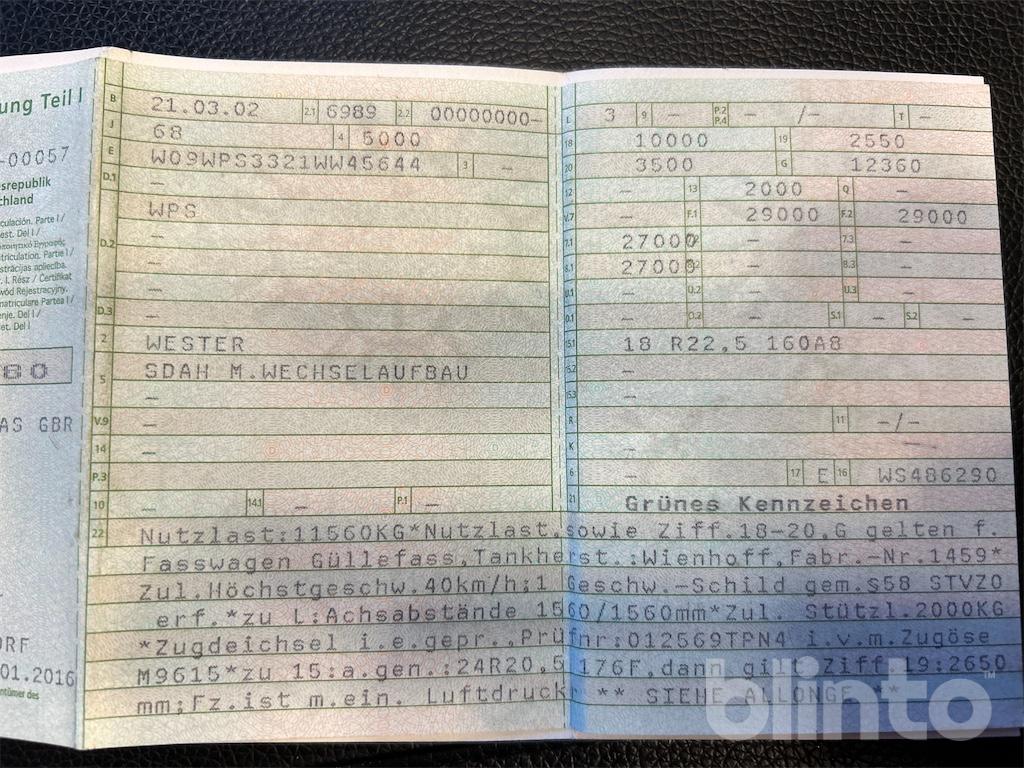 ung Teil I
-00057
esrepublik
chland
B 21.03.02 2.1 6989 2.2 00000000-
J 68 4 5000
E W09WPS3321WW45644 3 -
D.1 -
WPS
D.2 -
-
-
D.3 -
2 WESTER
5 SDAH M.WECHSELAUFBAU
-
V.9 -
14 -
P.3
10 - 14.1 - P.1 -
L 3 9 - P.2 P.4 - /- T -
18 10000 19 2550
20 3500 G 12360
12 - 13 2000 Q -
V.7 - F.1 29000 F.2 29000
7.1 27000 - 7.3 -
8.1 27000 - 8.3 -
U.1 - U.2 - U.3 -
O.1 - O.2 - S.1 - S.2 -
15.1 18 R22,5 160A8
15.2 -
15.3 -
R - 11 -/-
K - -
6 - 17 E 16 WS486290
21 Grünes Kennzeichen
22 Nutzlast:11560KG*Nutzlast.sowie Ziff.18-20,G gelten f.
Fasswagen Güllefass,Tankherst.:Wienhoff,Fabr.-Nr.1459*
Zul.Höchstgeschw.40km/h;1 Geschw.-Schild gem.§58 STVZO
erf.*zu L:Achsabstände 1560/1560mm*Zul. Stützl.2000KG
*Zugdeichsel i.e.gepr.,Prüfnr:012569TPN4 i.v.m.Zugöse
M9615*zu 15:a.gen.:24R20,5 176F,dann gilt Ziff.19:2650
mm;Fz.ist m.ein. Luftdruckr ** SIEHE ALLONGE **
culación. Parte I /
est. Del I /
triculation. Parte I /
strācijas apliecība.
. I. Rész / Certifikat
wód Rejestracyjny.
matriculare Partea I /
enje. Del I /
et. Del I
80
AS GBR
ORF
01.2016
entümer des
blinto™